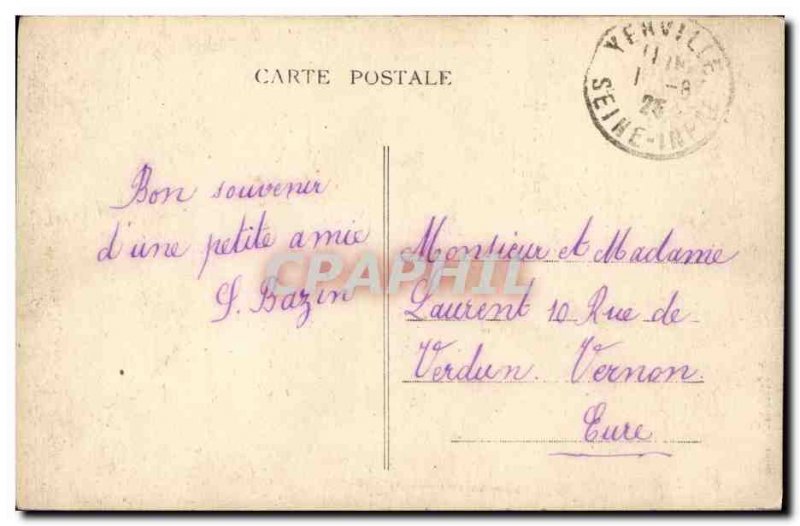 CARTE POSTALE
YERVILLE
25
SEINE-INFRE
Bon souvenir
d'une petite amie
S. Bazin
CPRAPHIL
Monsieur et Madame
Laurent 10 Rue de
Verdun. Vernon.
Eure